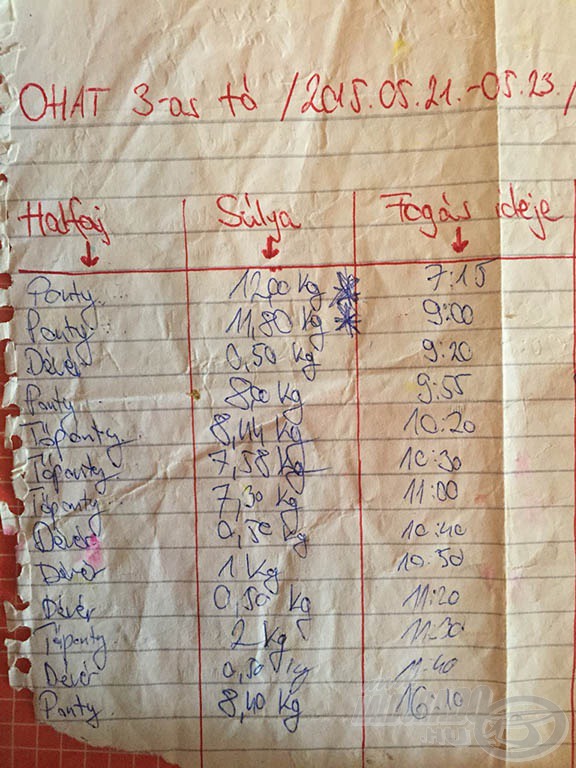 OHAT 3-as tó /2015.05.21.-05.23./
Halfaj Súlya Fogás ideje
Ponty 12,00 kg 7:15
Ponty 11,80 kg 9:00
Dévér 0,50 kg 9:20
Ponty 8,00 kg 9:55
Tőponty 8,44 kg 10:20
Tőponty 7,58 kg 10:30
Tőponty 7,30 kg 11:00
Dévér 0,50 kg 10:40
Dévér 1 kg 10:50
Dévér 0,50 kg 11:20
Tőponty 2 kg 11:30
Dévér 0,50 kg 11:40
Ponty 8,40 kg 16:10